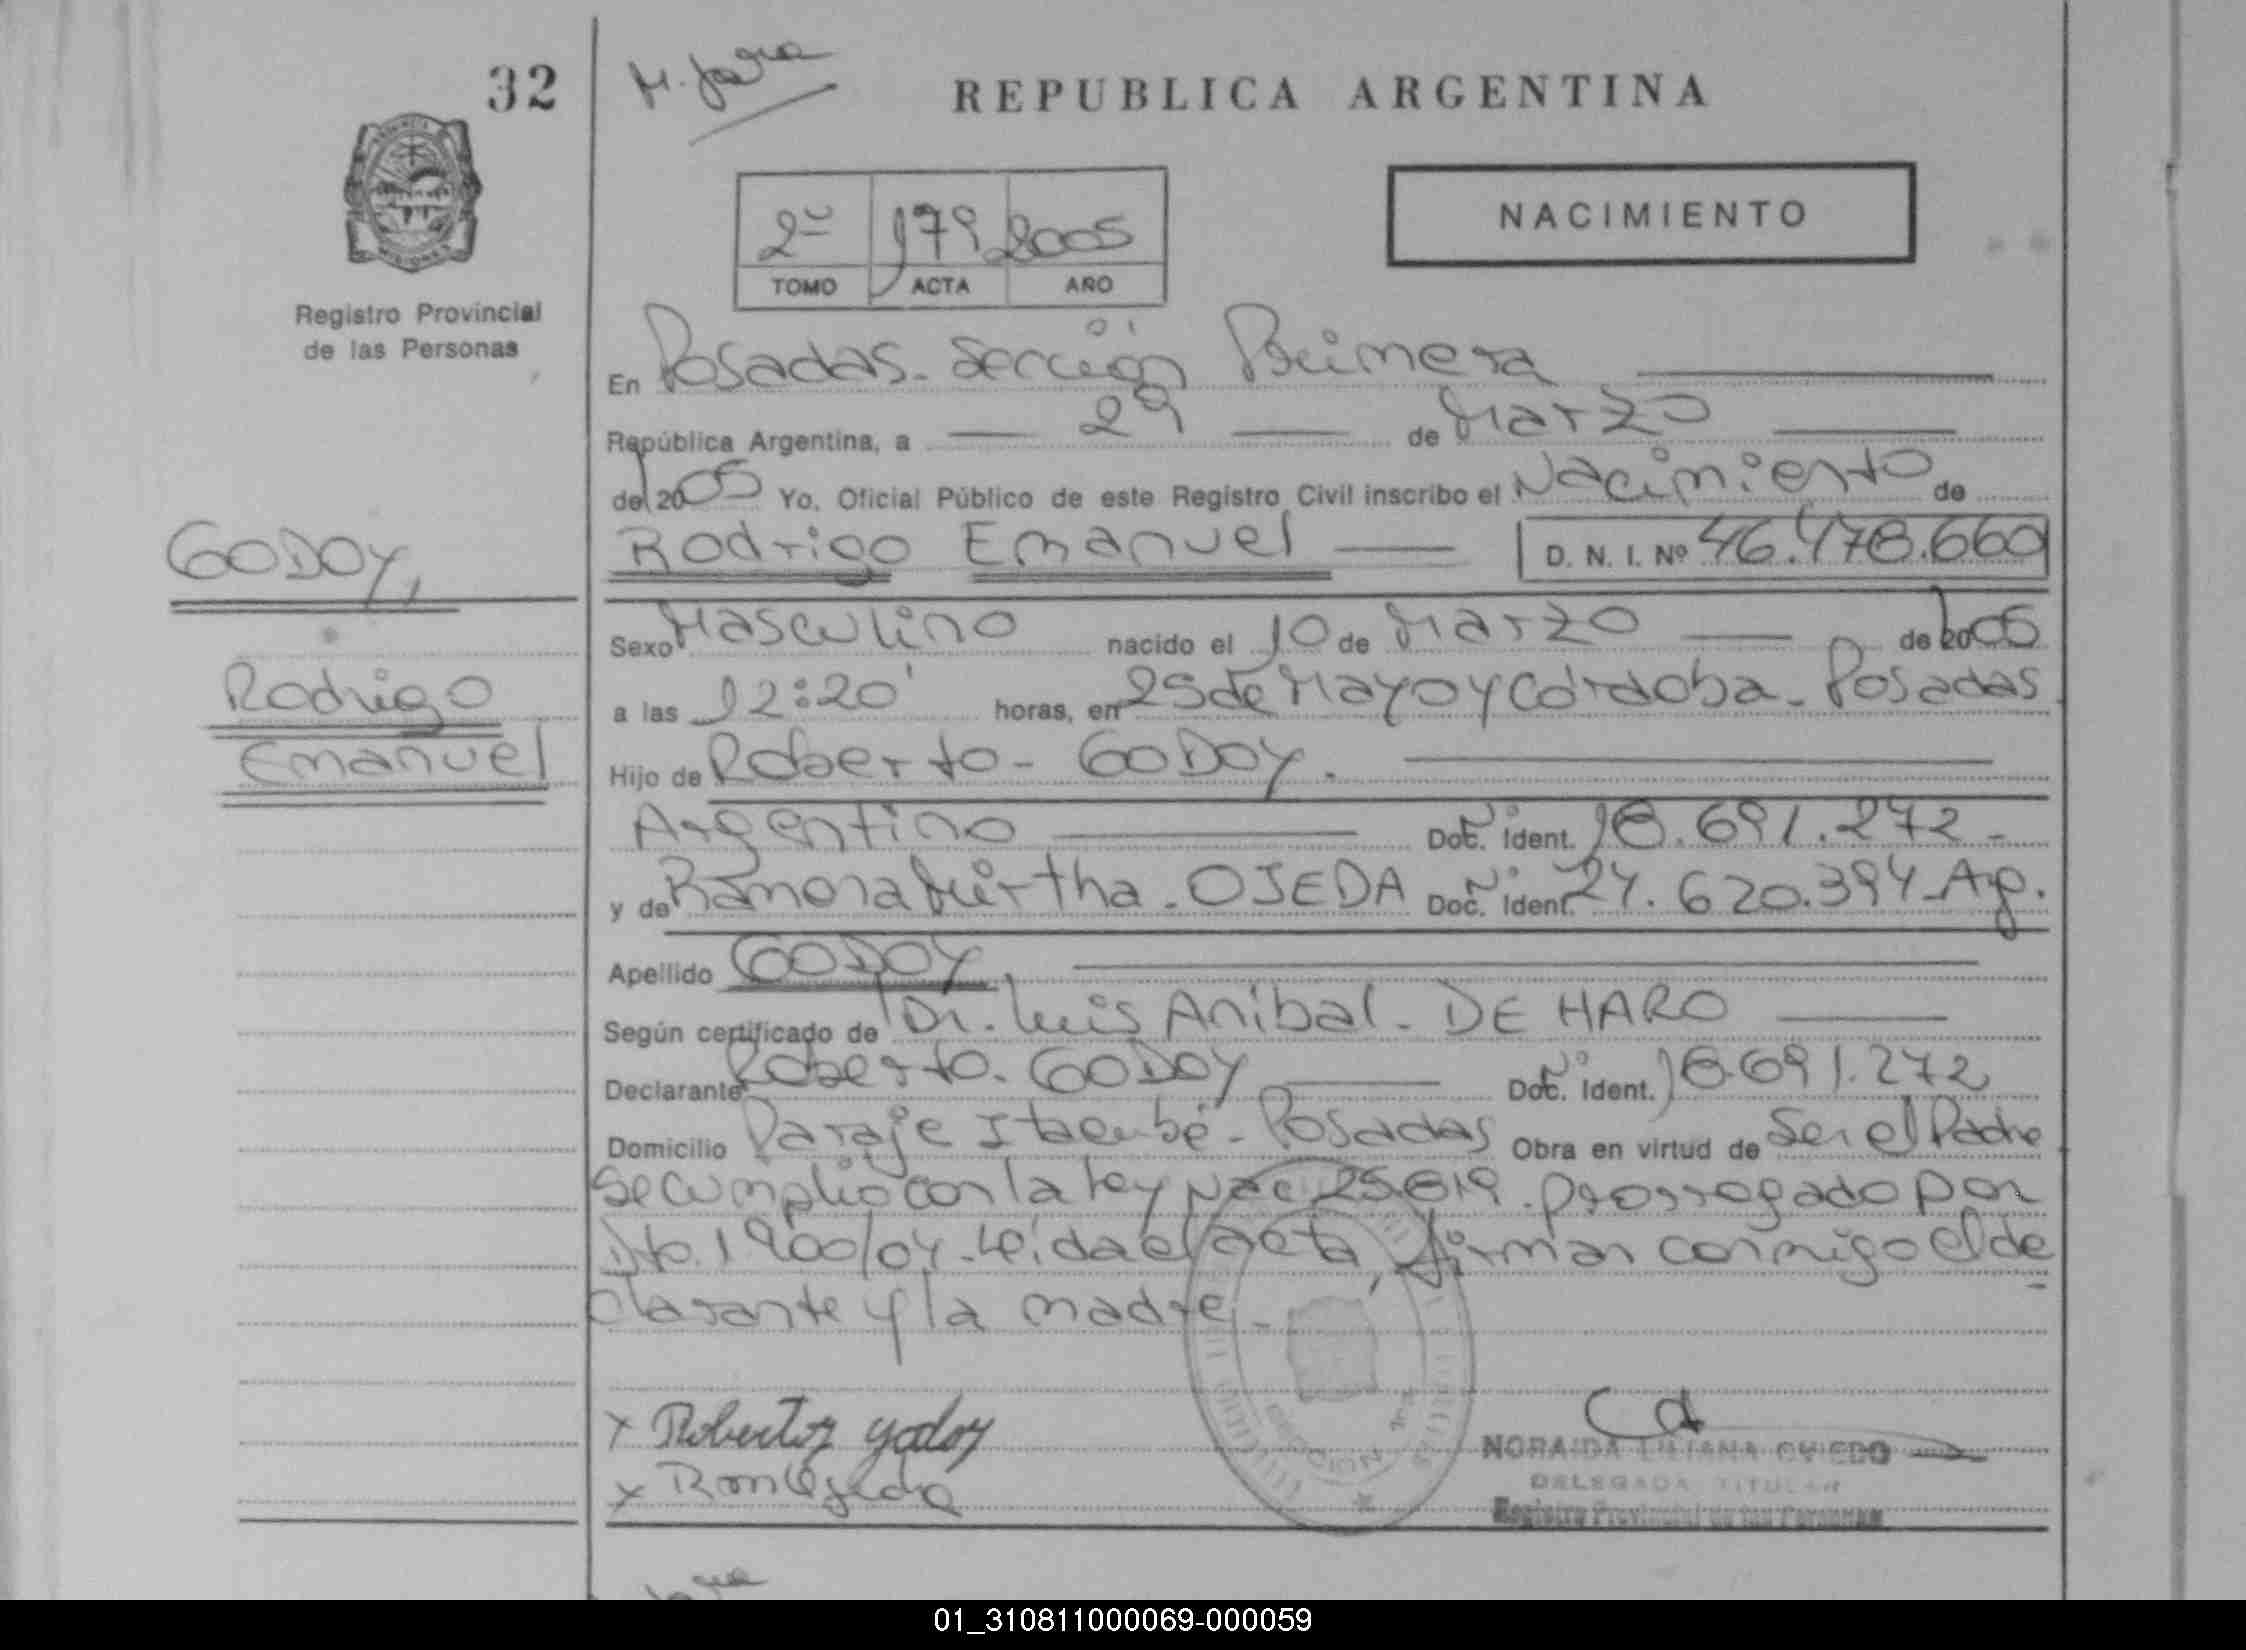 32
M. Jara
REPUBLICA ARGENTINA
2º 179 2005
TOMO ACTA AÑO
NACIMIENTO
Registro Provincial
de las Personas
En Posadas. Sección Primera
República Argentina, a 29 de Marzo
del 2005 Yo, Oficial Público de este Registro Civil inscribo el Nacimiento de
GODOY,
Rodrigo Emanuel D. N. I. Nº 46.478.660
Sexo Masculino nacido el 10 de Marzo de 2005
Rodrigo
Emanuel
a las 12:20' horas, en 25 de Mayo y Córdoba - Posadas.
Hijo de Roberto - GODOY.
Argentino Doc. Ident. 18.691.272 -
y de Ramona Mirtha - OJEDA Doc. Ident. 24.620.394 - Arg.
Apellido GODOY.
Según certificado de Dr. Luis Anibal - DE HARO
Declarante Roberto - GODOY Doc. Ident. 18.691.272
Domicilio Paraje Itaembé - Posadas Obra en virtud de Ser el Padre
Se cumplió con la Ley Nac. 25.819. prorrogado por
Dto. 1900/04 - Leída el acta, firman conmigo el de
clarante y la madre -
x Roberto godoy
x Ojeda
SECCION 1ra
NORAIDA LILIANA OVIEDO
DELEGADA TITULAR
Registro Provincial de las Personas
01_310811000069-000059